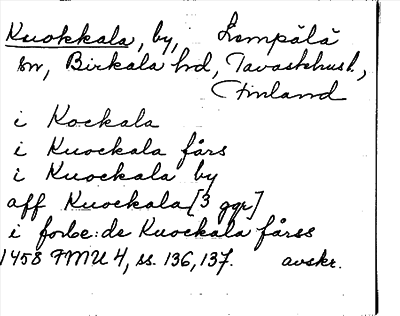 Kuokkala, by, Lempälä
sn, Birkala hd, Tavastehusl.,
Finland
i Kockala
i Kuockala fårs
i Kuockala by
aff Kuockala [3 ggr]
i forbe:de Kuockala fårss
1458 FMU 4, ss. 136, 137. avskr.